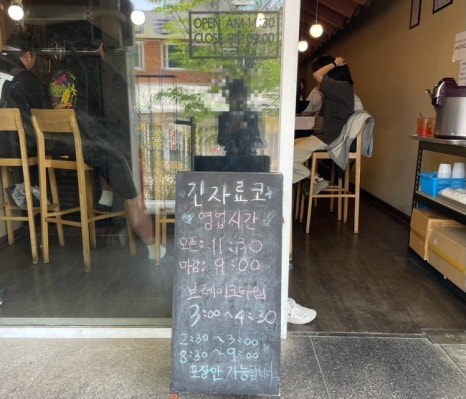 OPEN AM 11:30
CLOSE PM 09:00
진자료코
영업시간
오픈: 11:30
마감: 9:00
브레이크타임
3:00~4:30
2:30~3:00
8:30~9:00
포장만 가능합니다